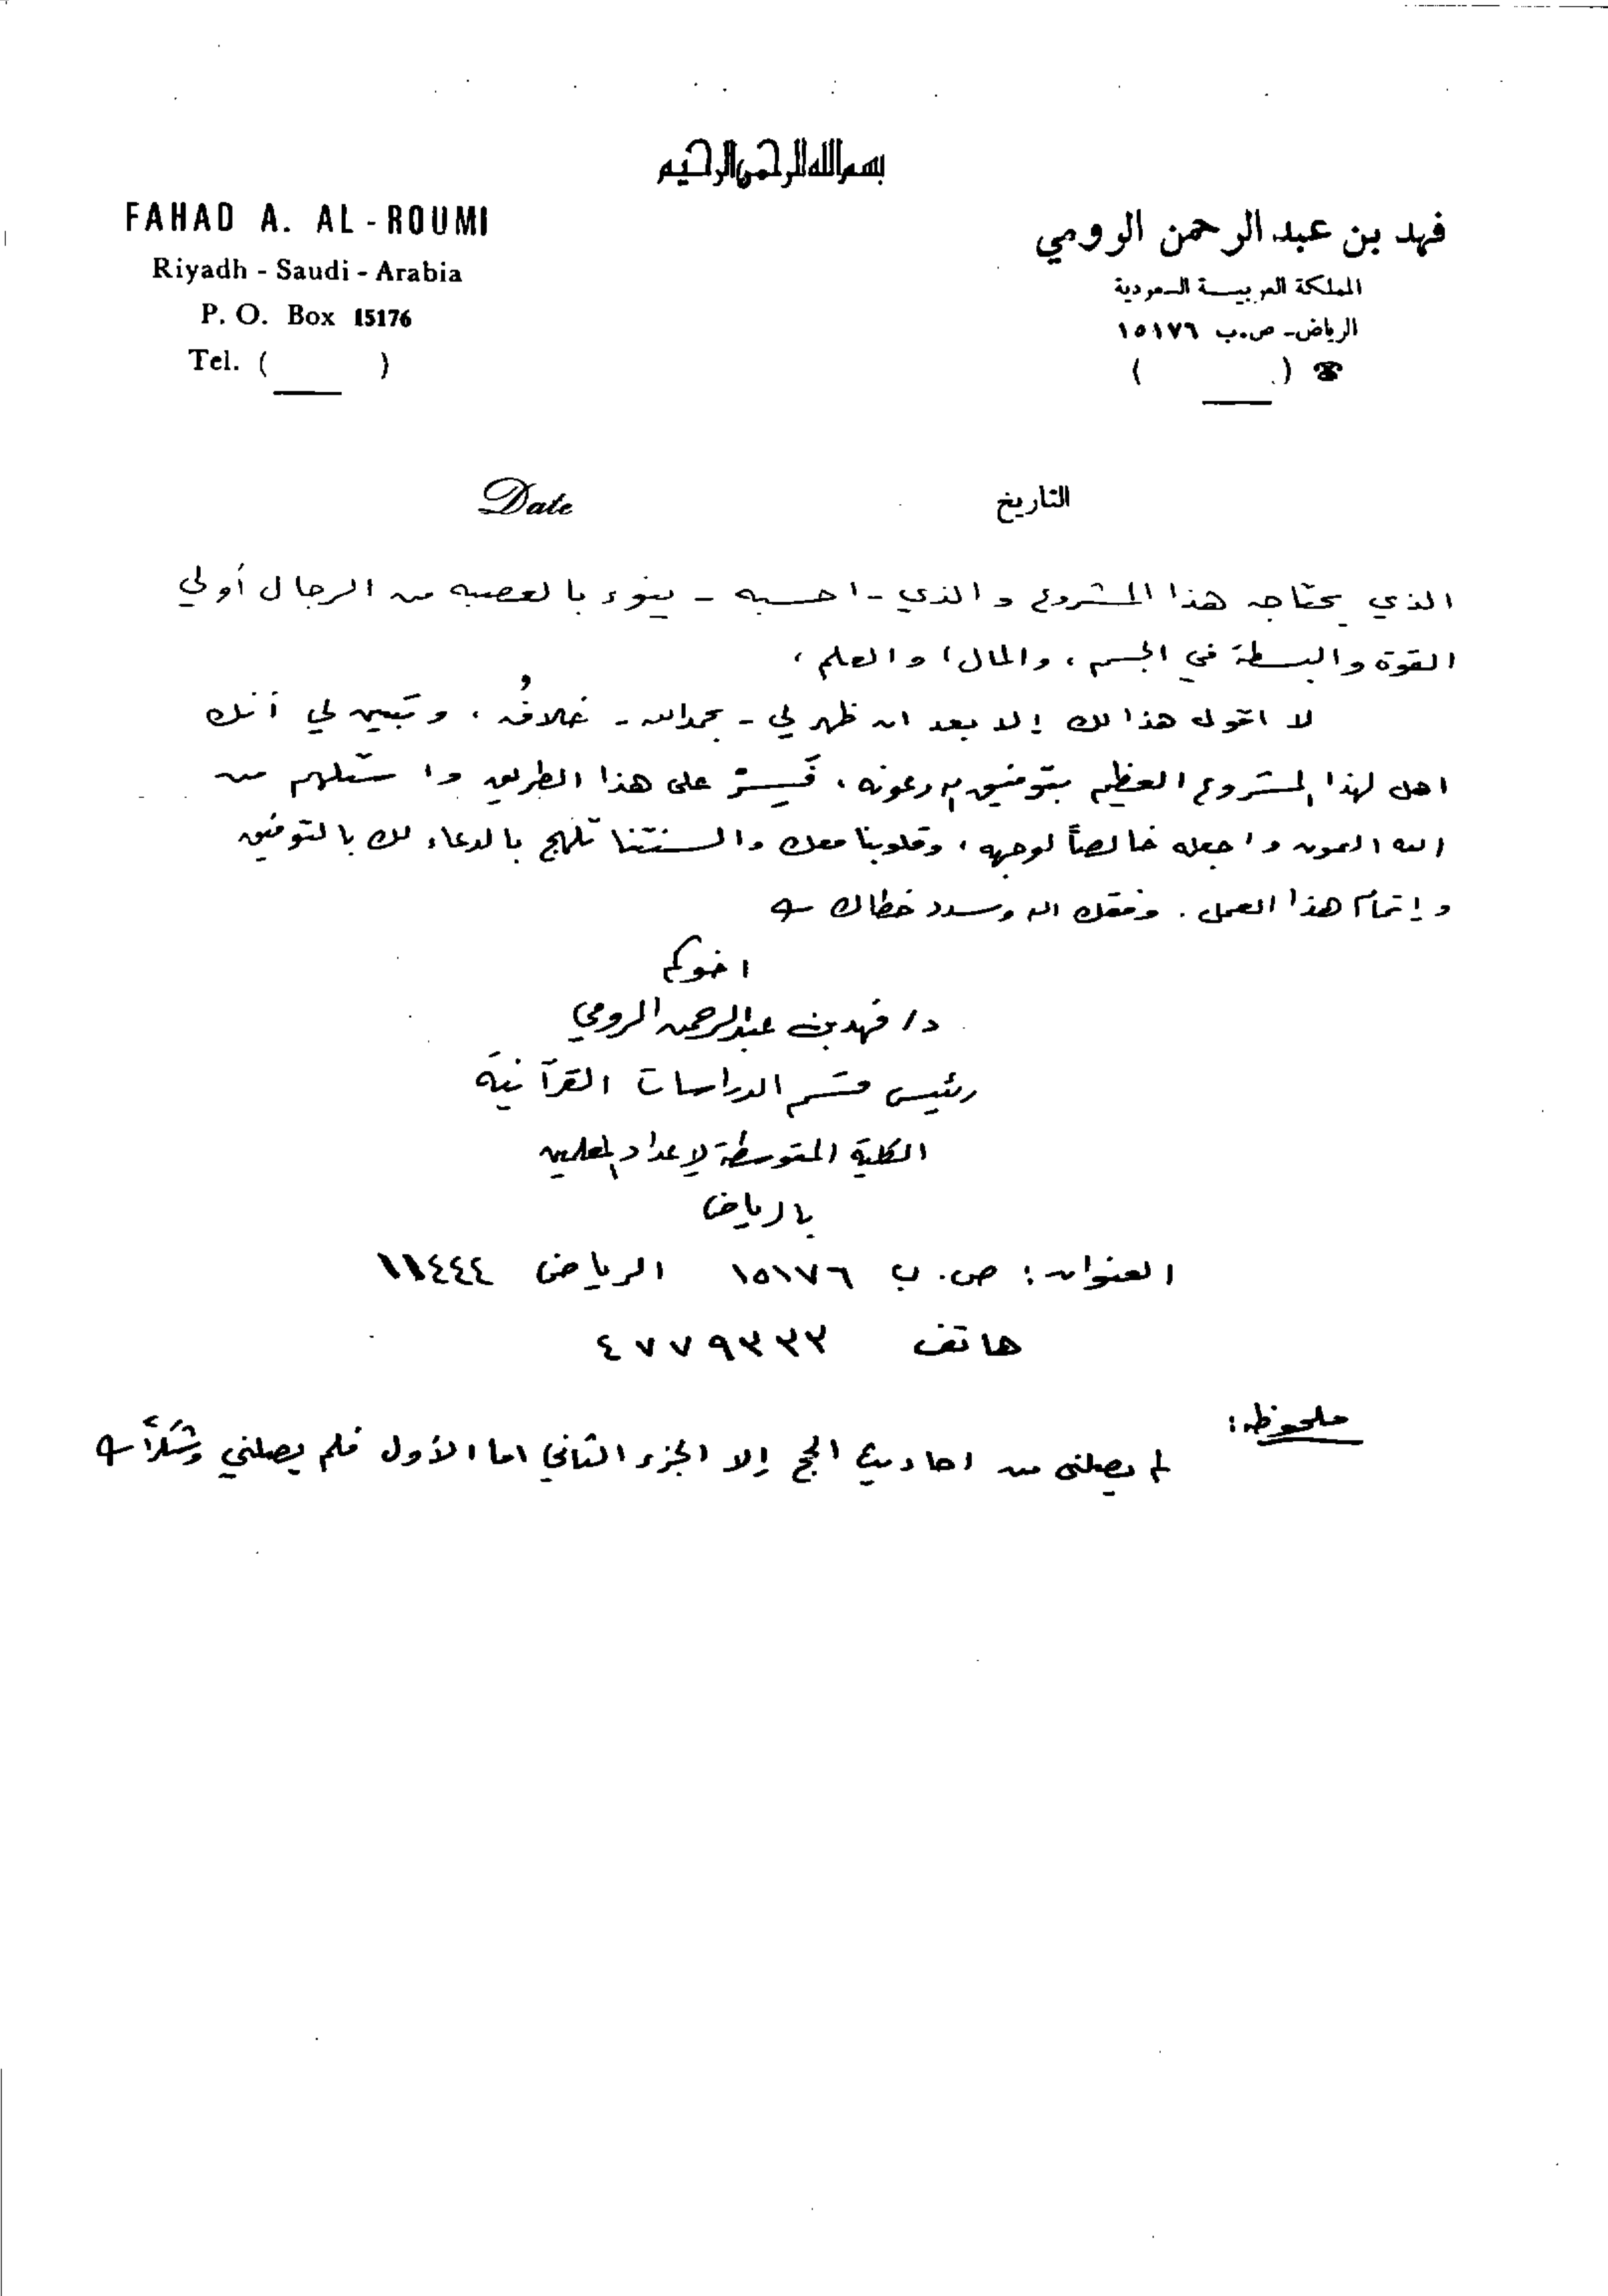 بسم الله الرحمن الرحيم
FAHAD A. AL-ROUMI
Riyadh - Saudi - Arabia
P. O. Box 15176
Tel. ( )
فهد بن عبد الرحمن الرومي
المملكة العربية السعودية
الرياض - ص.ب ١٥١٧٦
☎ ( )
Date
التاريخ
الذي يحتاجه هذا المشروع والذي - احسبه - ينوء بالعصبه من الرجال أولي
القوة والبسطة في الجسم ، والمال ، والعلم ،
لا اقول هذا لك إلا بعد ان ظهر لي - بحمد الله - خلافُه ، وتبين لي أنك
اهل لهذا المشروع العظيم بتوفيق الله وعونه ، فَسِرْ على هذا الطريق واستلهم من
الله العون واجعله خالصاً لوجهه ، وقلوبنا معك والسنتنا تلهج بالدعاء لك بالتوفيق
وإتمام هذا العمل . وفقك الله وسدد خطاك
اخوكم
د/ فهد بن عبدالرحمن الرومي
رئيس قسم الدراسات القرآنية
الكلية المتوسطة لإعداد المعلمين
بالرياض
العنوان : ص. ب ١٥١٧٦ الرياض ١١٤٤٤
هاتف ٤٧٧٩٣٣٣
ملحوظه :
لم يصلني من احاديث الحج إلا الجزء الثاني اما الأول فلم يصلني وشكراً